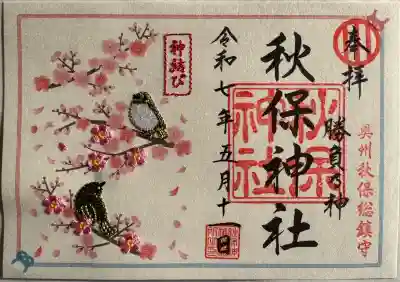 奉拝
勝負の神
奥州秋保総鎮守
秋保神社
秋保神社
令和七年五月十一日
神結び